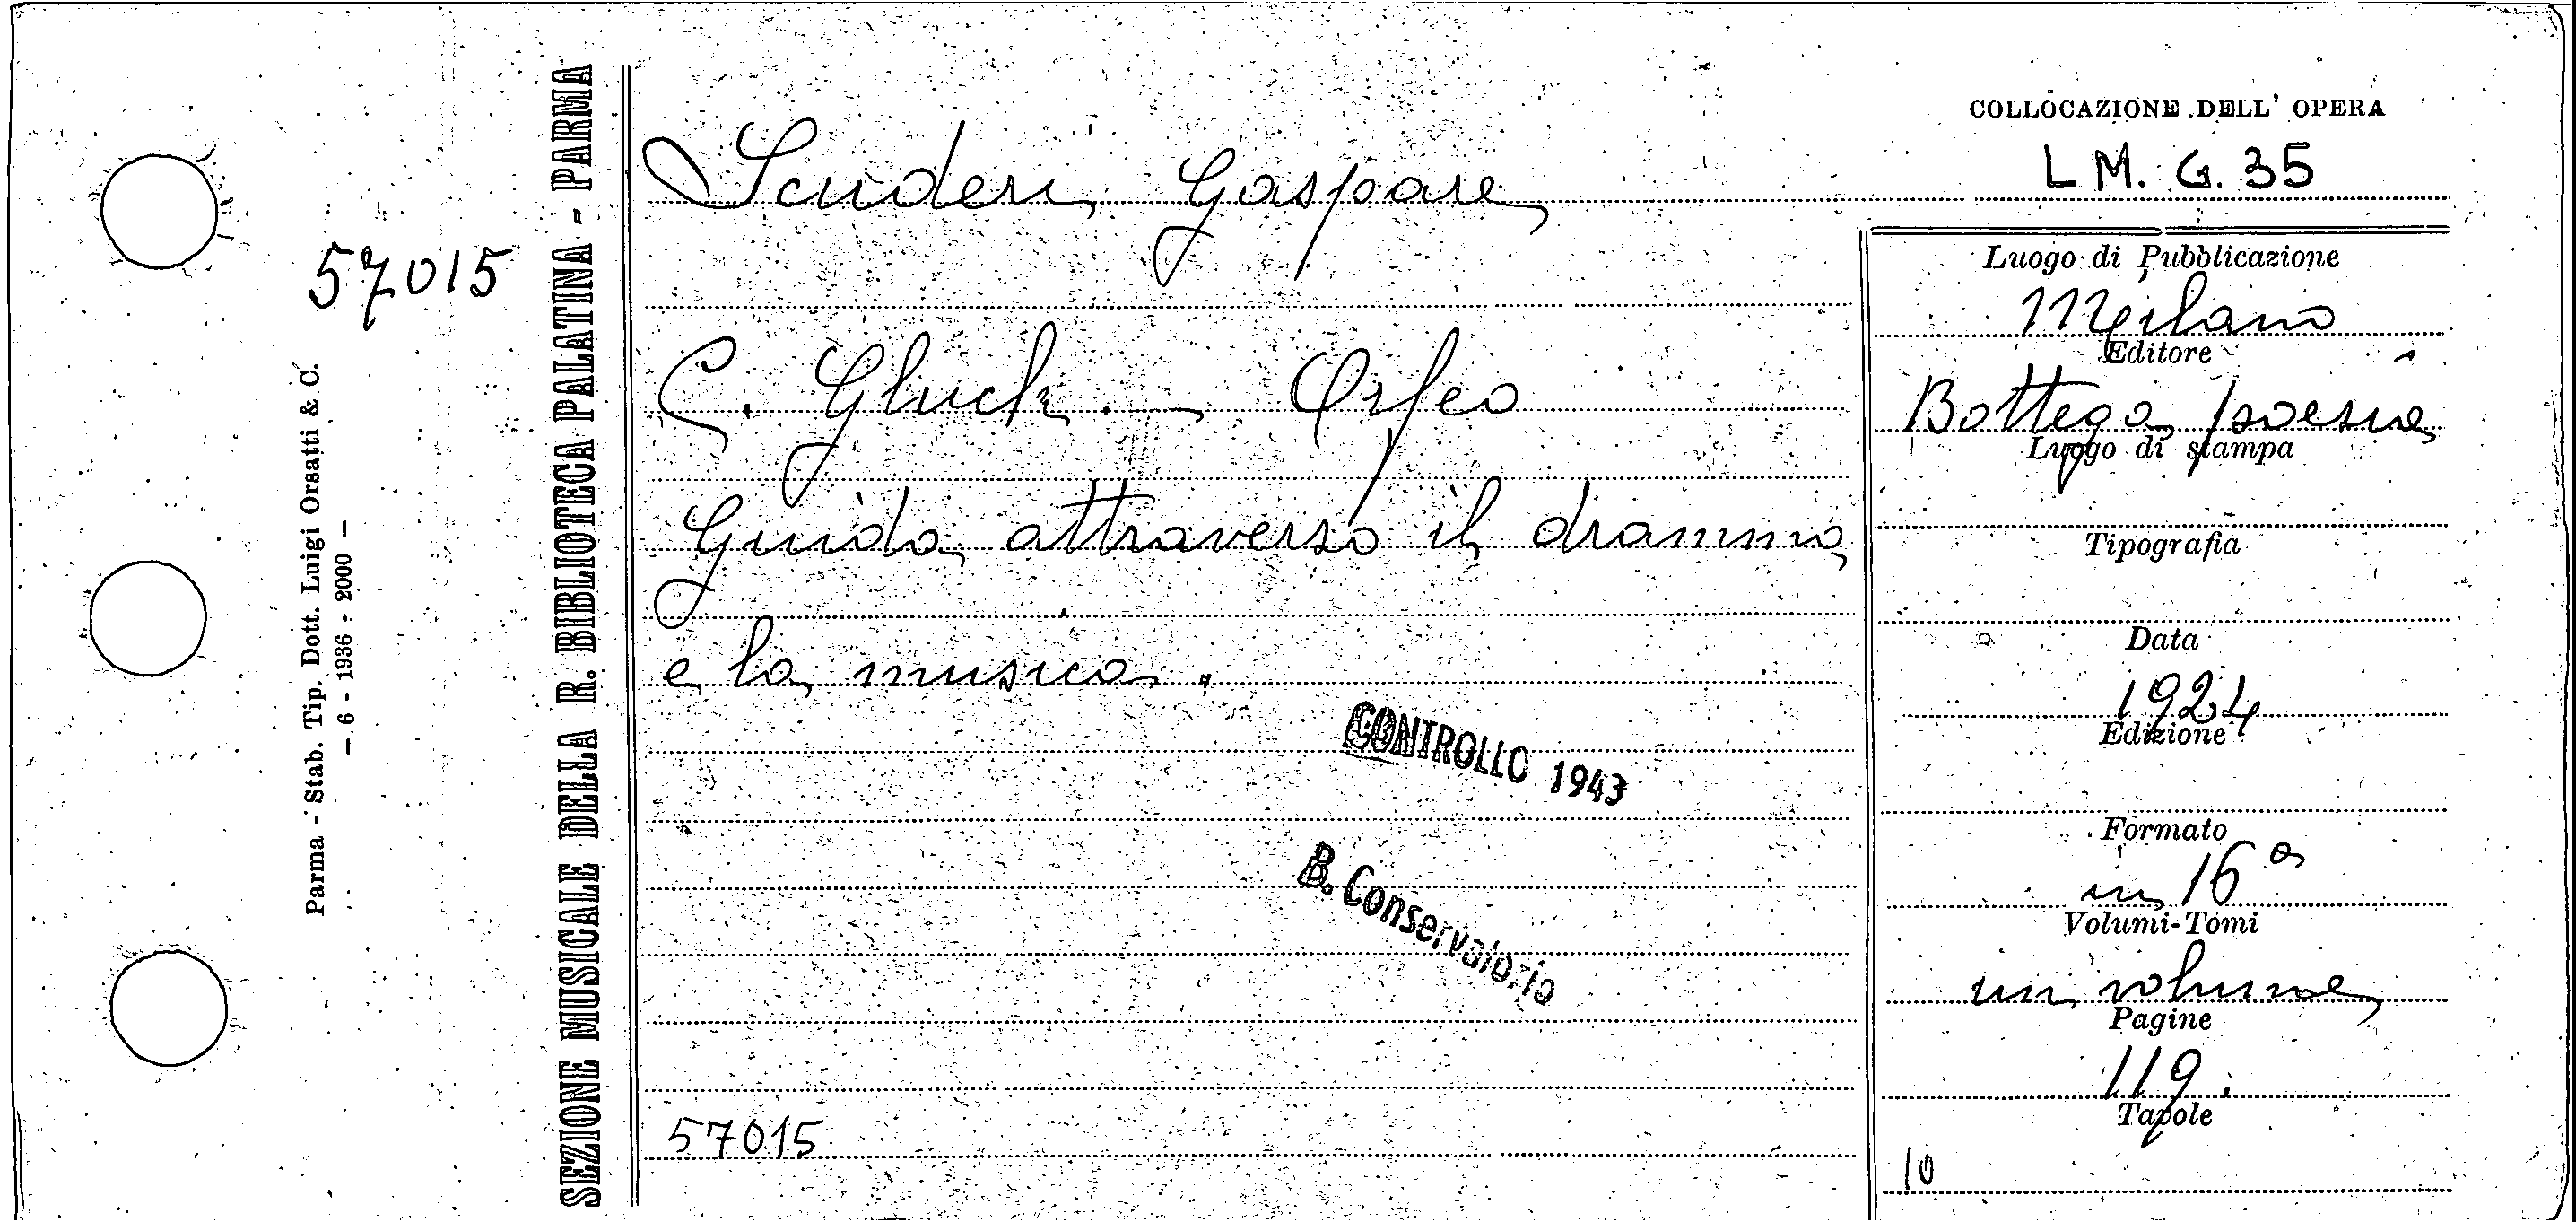 COLLOCAZIONE DELL' OPERA
L M. G. 35
Scuderi Gaspare
57015
C. Gluck. — Orfeo
Guida attraverso il dramma
e la musica.
CONTROLLO 1943
B. Conservatorio
57015
Luogo di Pubblicazione
Milano
Editore
Bottega poesia
Luogo di stampa
Tipografia
Data
1924
Edizione
Formato
in 16º
Volumi-Tomi
un volume
Pagine
119.
Tavole
10
SEZIONE MUSICALE DELLA R. BIBLIOTECA PALATINA - PARMA
Parma - Stab. Tip. Dott. Luigi Orsatti & C.
— 6 - 1936 - 2000 —